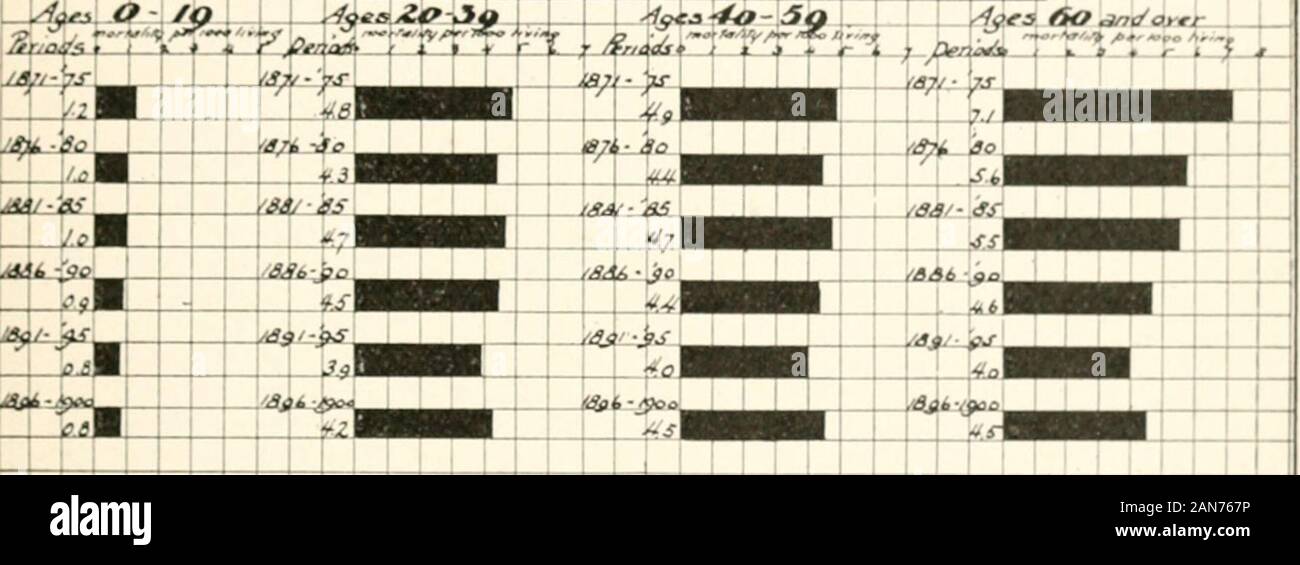 Ages 0 - 19 Ages 20-39 Ages 40-59 Ages 60 and over
mortality per 1000 living mortality per 1000 living mortality per 1000 living mortality per 1000 living
Periods 1 2 3 4 5 Periods 1 2 3 4 5 6 7 Periods 1 2 3 4 5 6 7 Periods 1 2 3 4 5 6 7 8
1871-'75 1871-'75 1871-'75 1871-'75
1.2 4.8 4.9 7.1
1876-'80 1876-'80 1876-'80 1876 '80
1.0 4.3 4.4 5.6
1881-'85 1881-'85 1881-'85 1881-'85
1.0 4.7 4.7 5.5
1886-'90 1886-'90 1886-'90 1886-'90
0.9 4.5 4.4 4.6
1891-'95 1891-'95 1891-'95 1891-'95
0.8 3.9 4.0 4.0
1896-1900 1896-1900 1896-1900 1896-1900
0.8 4.2 4.5 4.5
alamy
a a a
a a
alamy
Image ID: 2AN767P
www.alamy.com